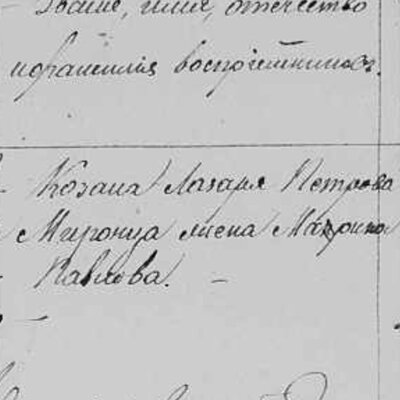 Званіе, имя, отчество
и фамилія воспріемниковъ.
Козака Лазаря Петрова
Мирониа жена Матрона
Павлова. –